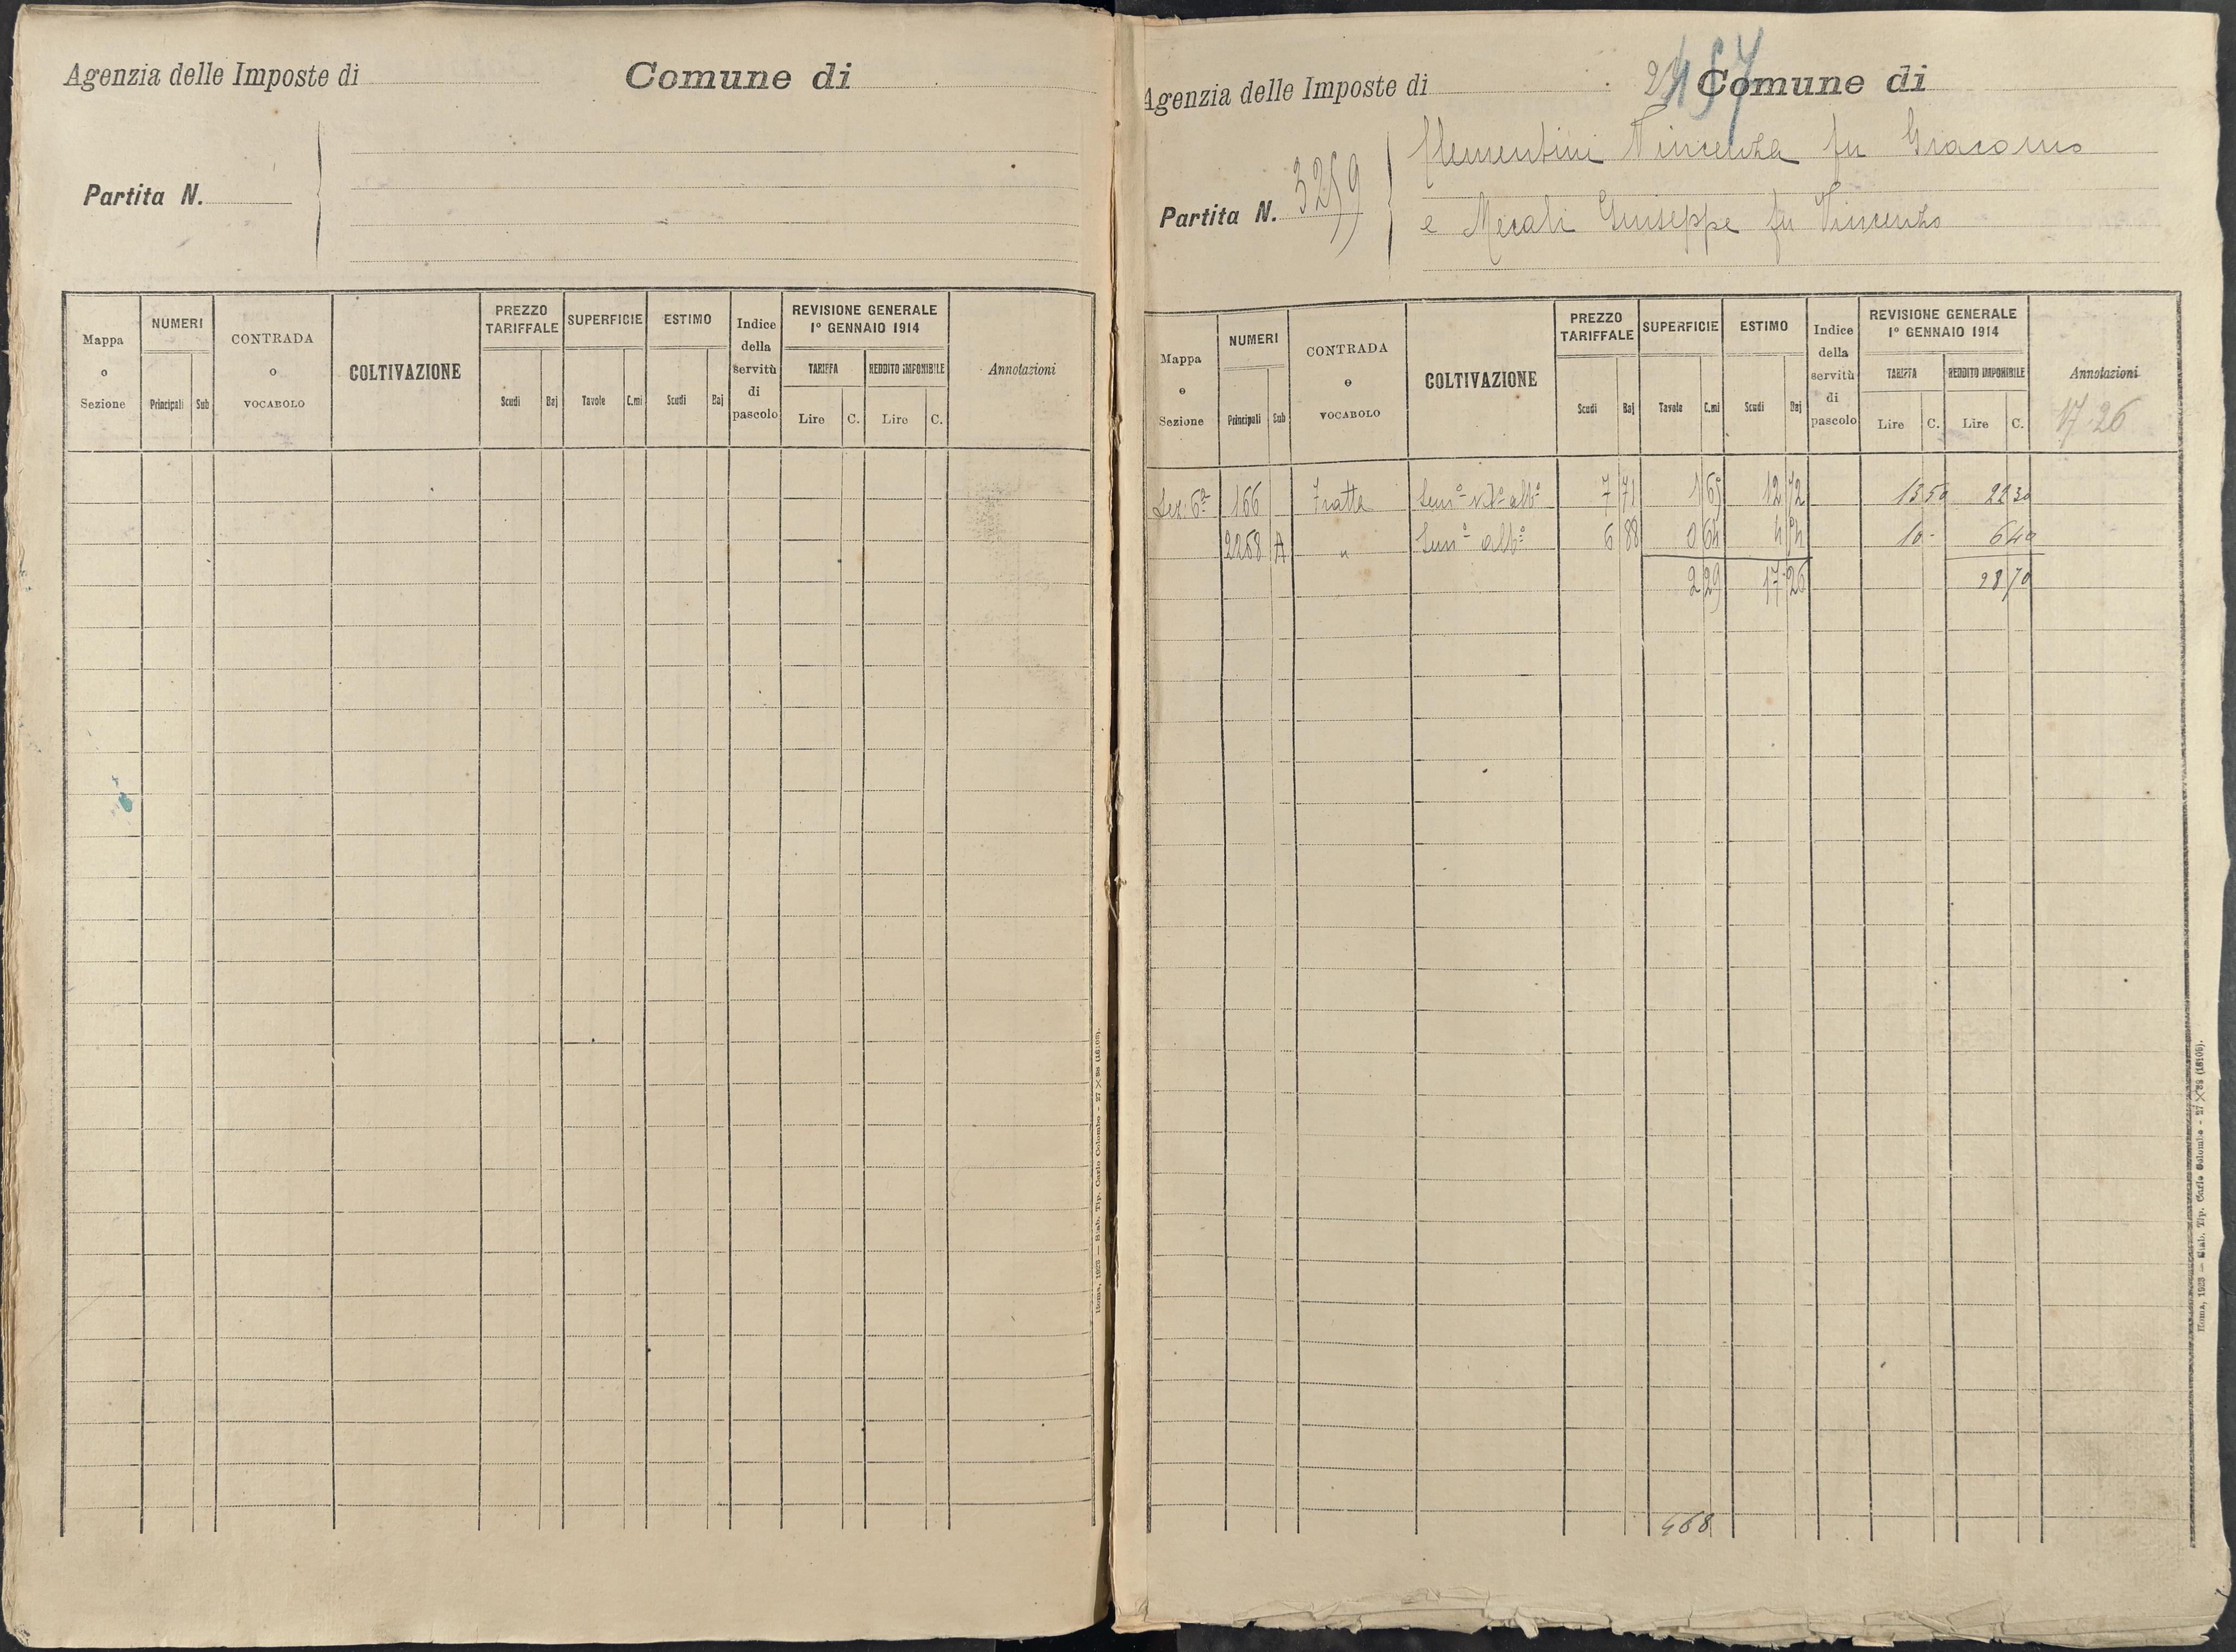 Agenzia delle Imposte di
Comune di
Partita N.
Mappa o Sezione
NUMERI
Principali
Sub
CONTRADA o VOCABOLO
COLTIVAZIONE
PREZZO TARIFFALE
Scudi
Baj
SUPERFICIE
Tavole
C.mi
ESTIMO
Scudi
Baj
Indice della servitù di pascolo
REVISIONE GENERALE
1° GENNAIO 1914
TARIFFA
REDDITO IMPONIBILE
Lire
C.
Lire
C.
Annotazioni
Roma, 1923 — Stab. Tip. Carlo Colombo - 27 X 38
Agenzia delle Imposte di
Comune di
Partita N. 3259
Clementini Vincenza fu Giacomo
e Mecali Giuseppe fu Vincenzo
Mappa o Sezione
NUMERI
Principali
Sub
CONTRADA o VOCABOLO
COLTIVAZIONE
PREZZO TARIFFALE
Scudi
Baj
SUPERFICIE
Tavole
C.mi
ESTIMO
Scudi
Baj
Indice della servitù di pascolo
REVISIONE GENERALE
1° GENNAIO 1914
TARIFFA
REDDITO IMPONIBILE
Lire
C.
Lire
C.
Annotazioni
17.26
Sez. 6ª 166 Fratta Sem° vt° alb° 7 71 1 65 12 72 13 50 22 30
2268 A " Sem° alb° 6 88 0 64 4 54 10 - 6 40
2 29 17 26 28 70
468
Roma, 1923 — Stab. Tip. Carlo Colombo - 27 X 38